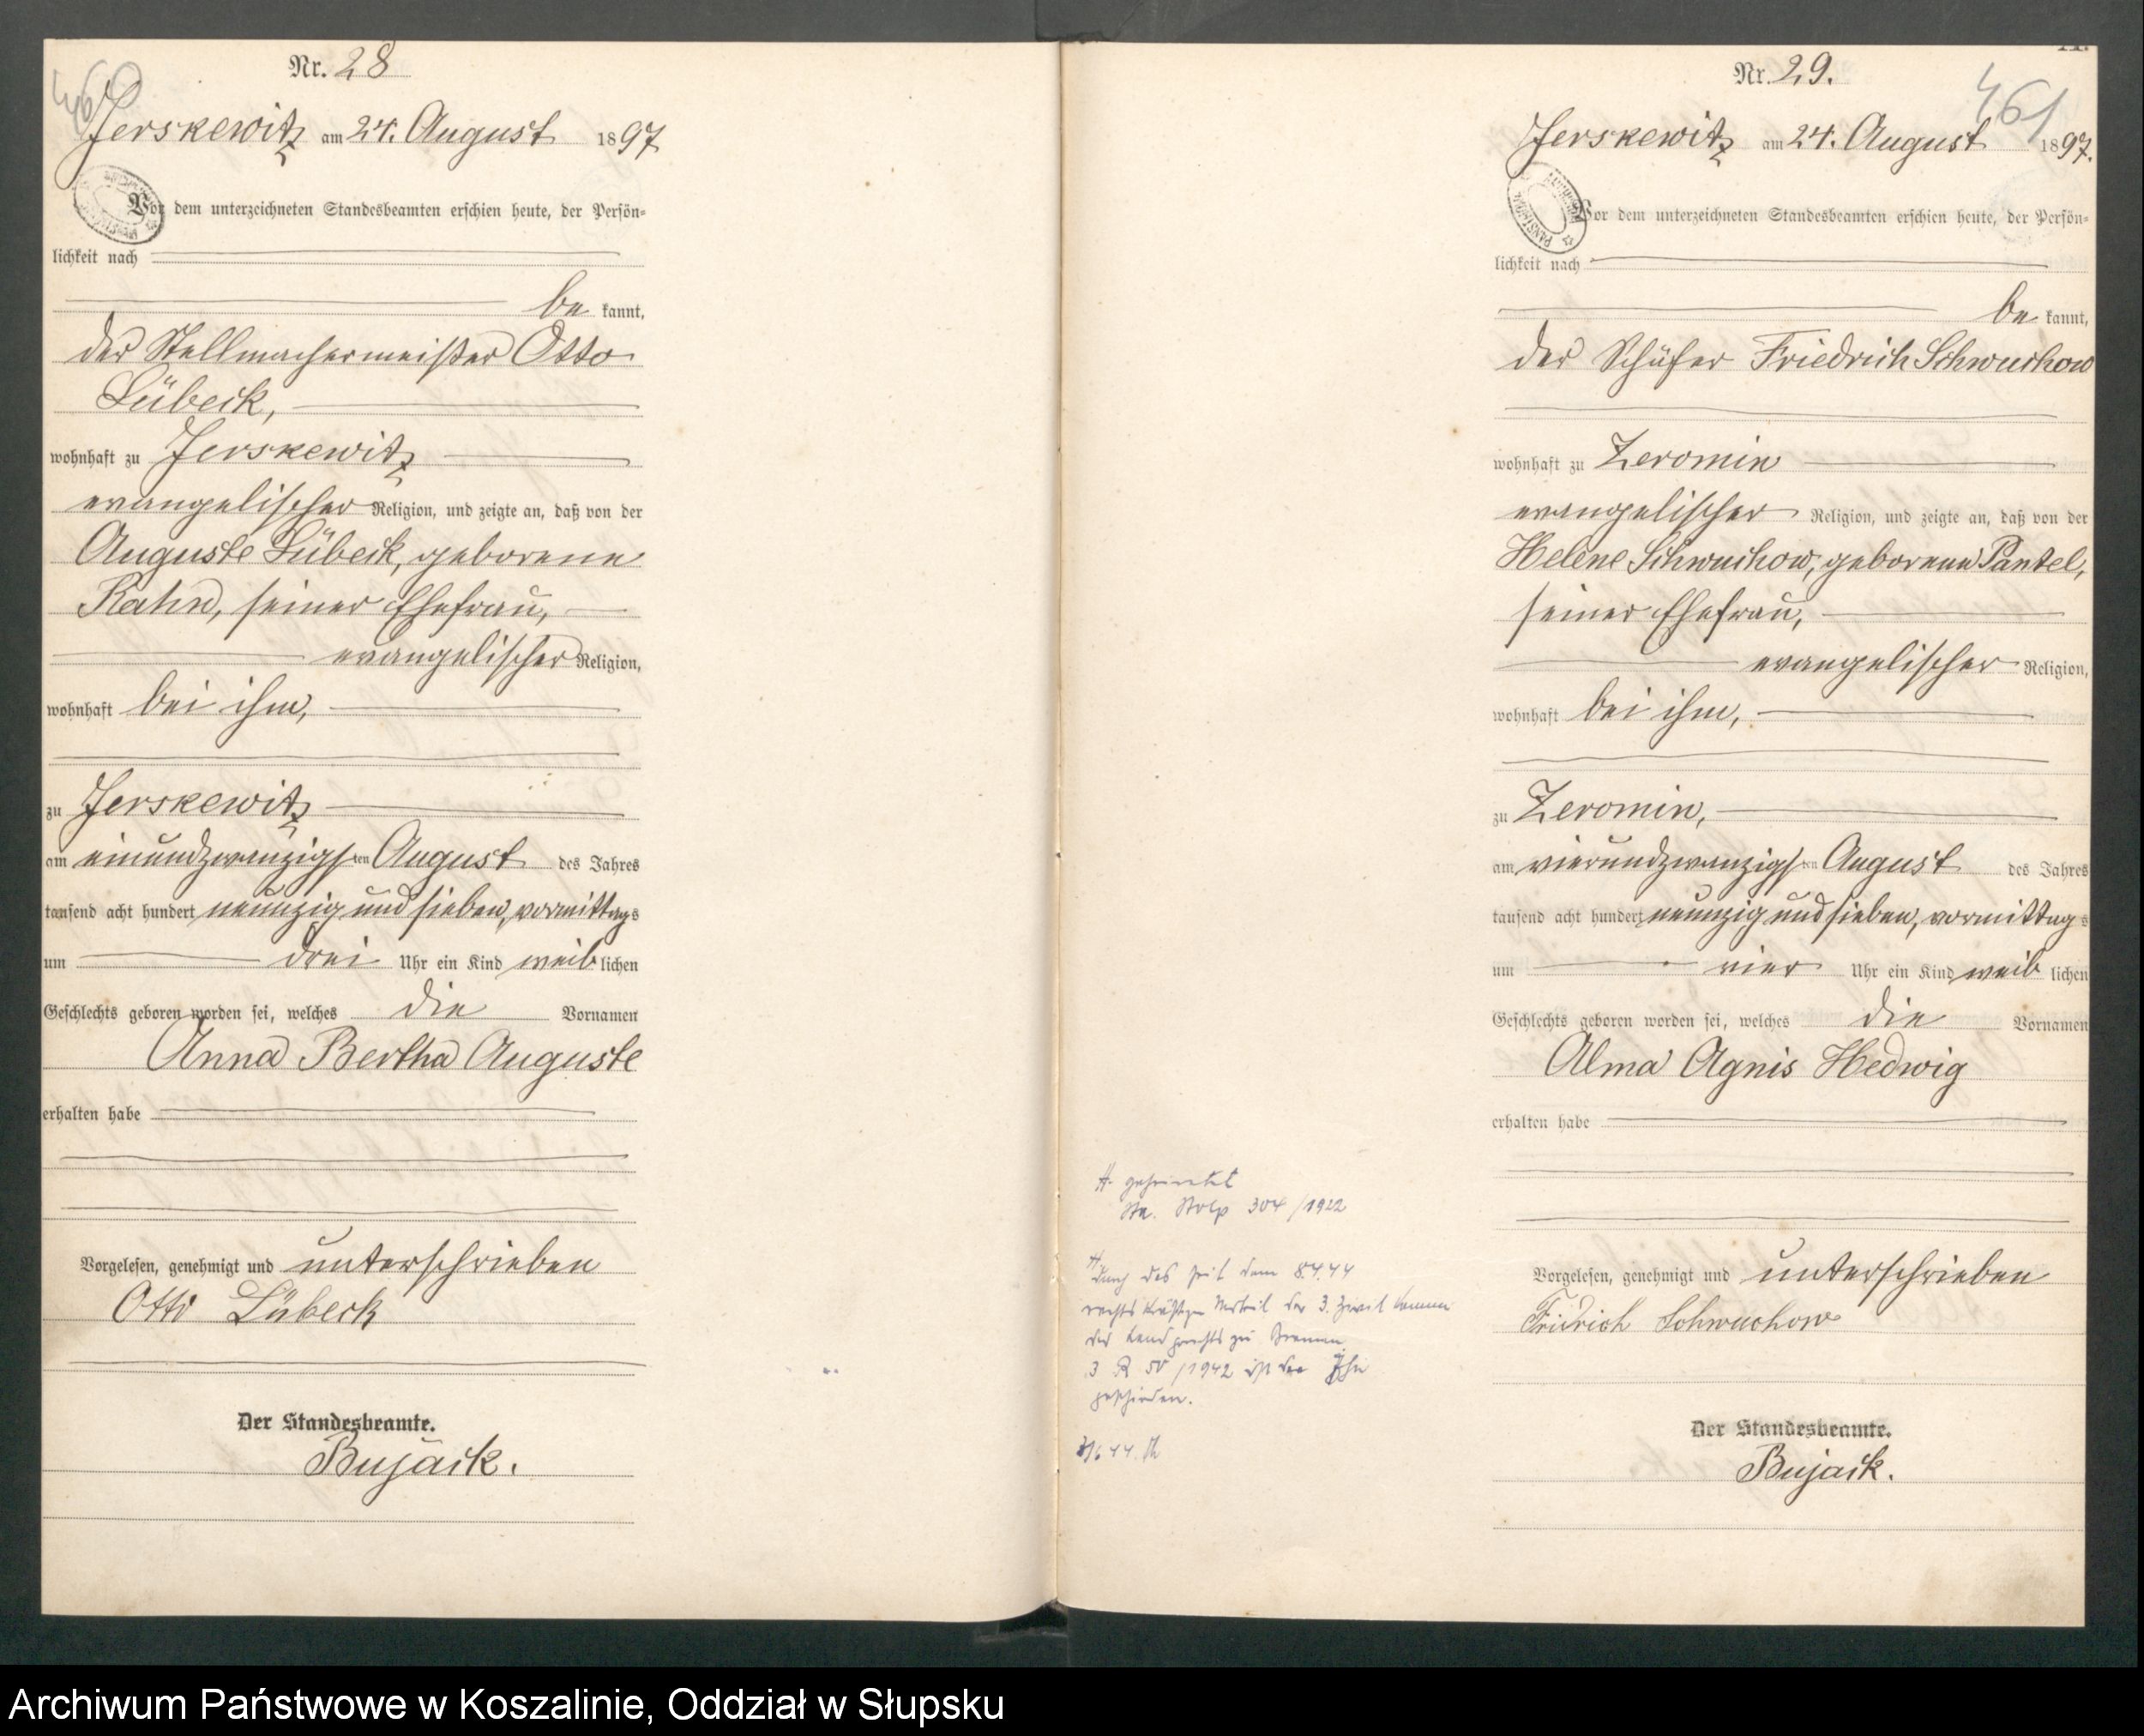 460
Nr. 28
Jerskewitz am 24. August 1897
Vor dem unterzeichneten Standesbeamten erschien heute, der Persön-
lichkeit nach
be kannt,
der Stellmachermeister Otto
Lübeck,
wohnhaft zu Jerskewitz
evangelischer Religion, und zeigte an, daß von der
Auguste Lübeck, geborene
Kahn, seiner Ehefrau,
evangelischer Religion,
wohnhaft bei ihm,
zu Jerskewitz
am einundzwanzigsten August des Jahres
tausend acht hundert neunzig und sieben, vormittags
um drei Uhr ein Kind weiblichen
Geschlechts geboren worden sei, welches die Vornamen
Anna Bertha Auguste
erhalten habe
Vorgelesen, genehmigt und unterschrieben
Otto Lübeck
Der Standesbeamte.
Bujack.
Nr. 29.
461
Jerskewitz am 24. August 1897.
Vor dem unterzeichneten Standesbeamten erschien heute, der Persön-
lichkeit nach
be kannt,
der Schäfer Friedrich Schwuchow
wohnhaft zu Zeromin
evangelischer Religion, und zeigte an, daß von der
Helene Schwuchow, geborene Pantel,
seiner Ehefrau,
evangelischer Religion,
wohnhaft bei ihm,
zu Zeromin,
am vierundzwanzigsten August des Jahres
tausend acht hundert neunzig und sieben, vormittags
um vier Uhr ein Kind weib lichen
Geschlechts geboren worden sei, welches die Vornamen
Alma Agnis Hedwig
erhalten habe
Vorgelesen, genehmigt und unterschrieben
Fridrich Schwuchow
Der Standesbeamte.
Bujack.
geheiratet
Sta. Stolp 304/1922
Durch das seit dem 8.4.44
rechtskräftige Urteil der 3. Zivilkammer
des Landgerichts zu Bremen
3 R 50/1942 ist die Ehe
geschieden.
Archiwum Państwowe w Koszalinie, Oddział w Słupsku